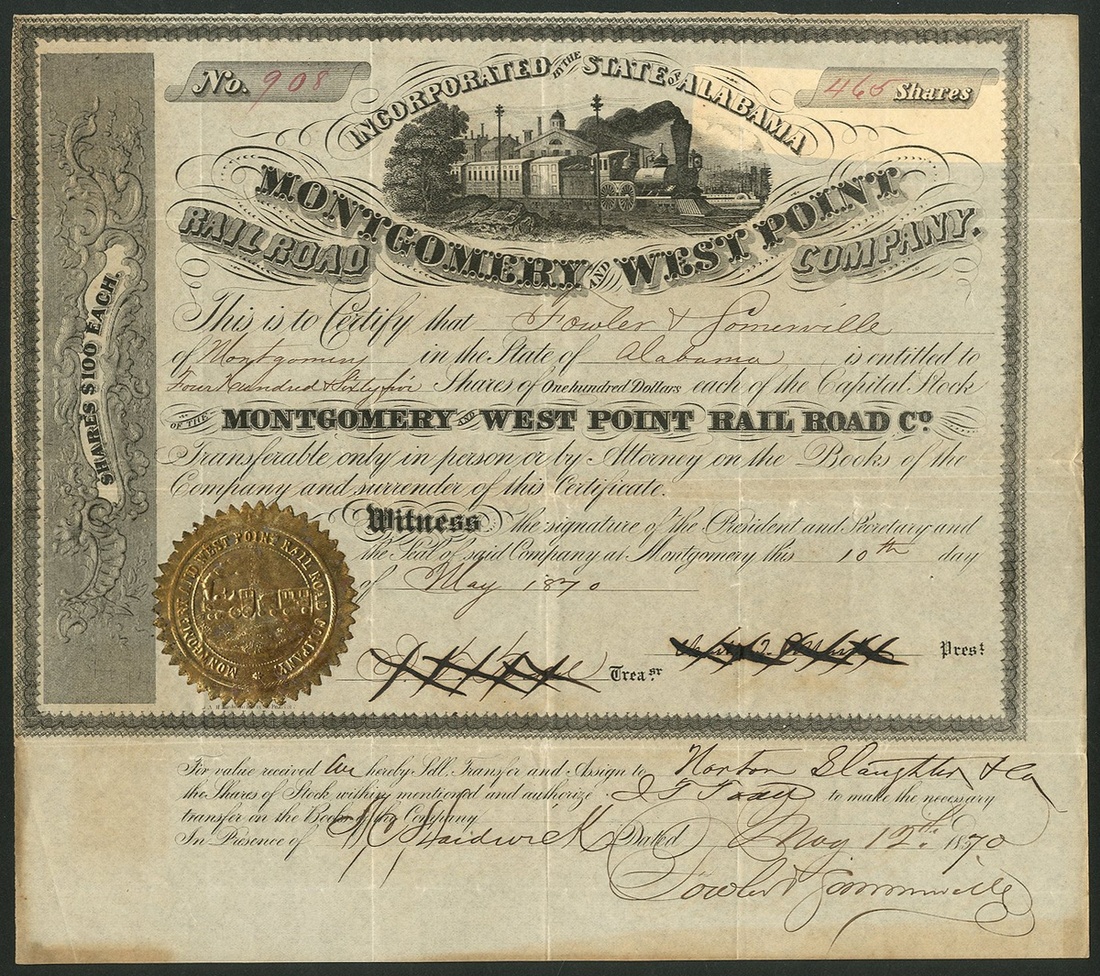 No. 908
465 Shares
INCORPORATED BY THE STATE OF ALABAMA
MONTGOMERY AND WEST POINT
RAIL ROAD COMPANY.
SHARES $100 EACH.
This is to Certify that Fowler & Somerville
of Montgomery in the State of Alabama is entitled to
Four hundred & Sixty five Shares of One hundred Dollars each of the Capital Stock
OF THE MONTGOMERY AND WEST POINT RAIL ROAD Co.
Transferable only in person or by Attorney on the Books of the
Company and surrender of this Certificate.
Witness the signature of the President and Secretary and
the Seal of said Company at Montgomery this 10th day
of May 1870
MONTGOMERY AND WEST POINT RAIL ROAD COMPANY.
Treasr
Prest
For value received we hereby Sell, Transfer and Assign to Norton Slaughter & Co
the Shares of Stock within mentioned and authorize to make the necessary
transfer on the Books of the Company
In Presence of Dated May 12th 1870
Fowler & Somerville